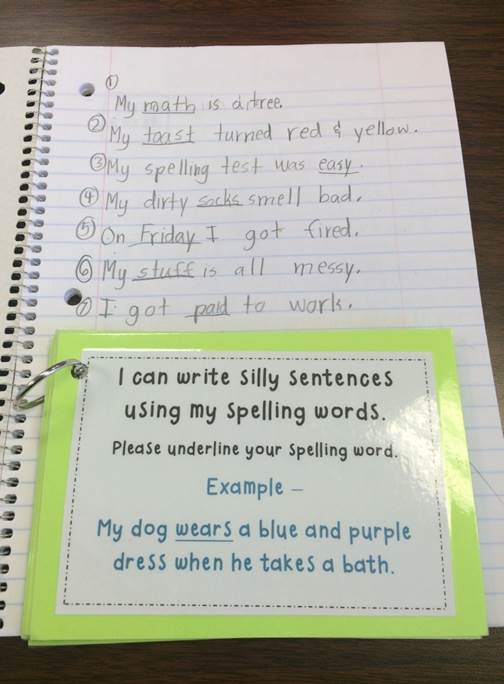 ①
My math is a tree.
② My toast turned red & yellow.
③ My spelling test was easy.
④ My dirty socks smell bad.
⑤ On Friday I got fired.
⑥ My stuff is all messy.
⑦ I got paid to work.
I can write silly sentences
using my spelling words.
Please underline your spelling word.
Example –
My dog wears a blue and purple
dress when he takes a bath.